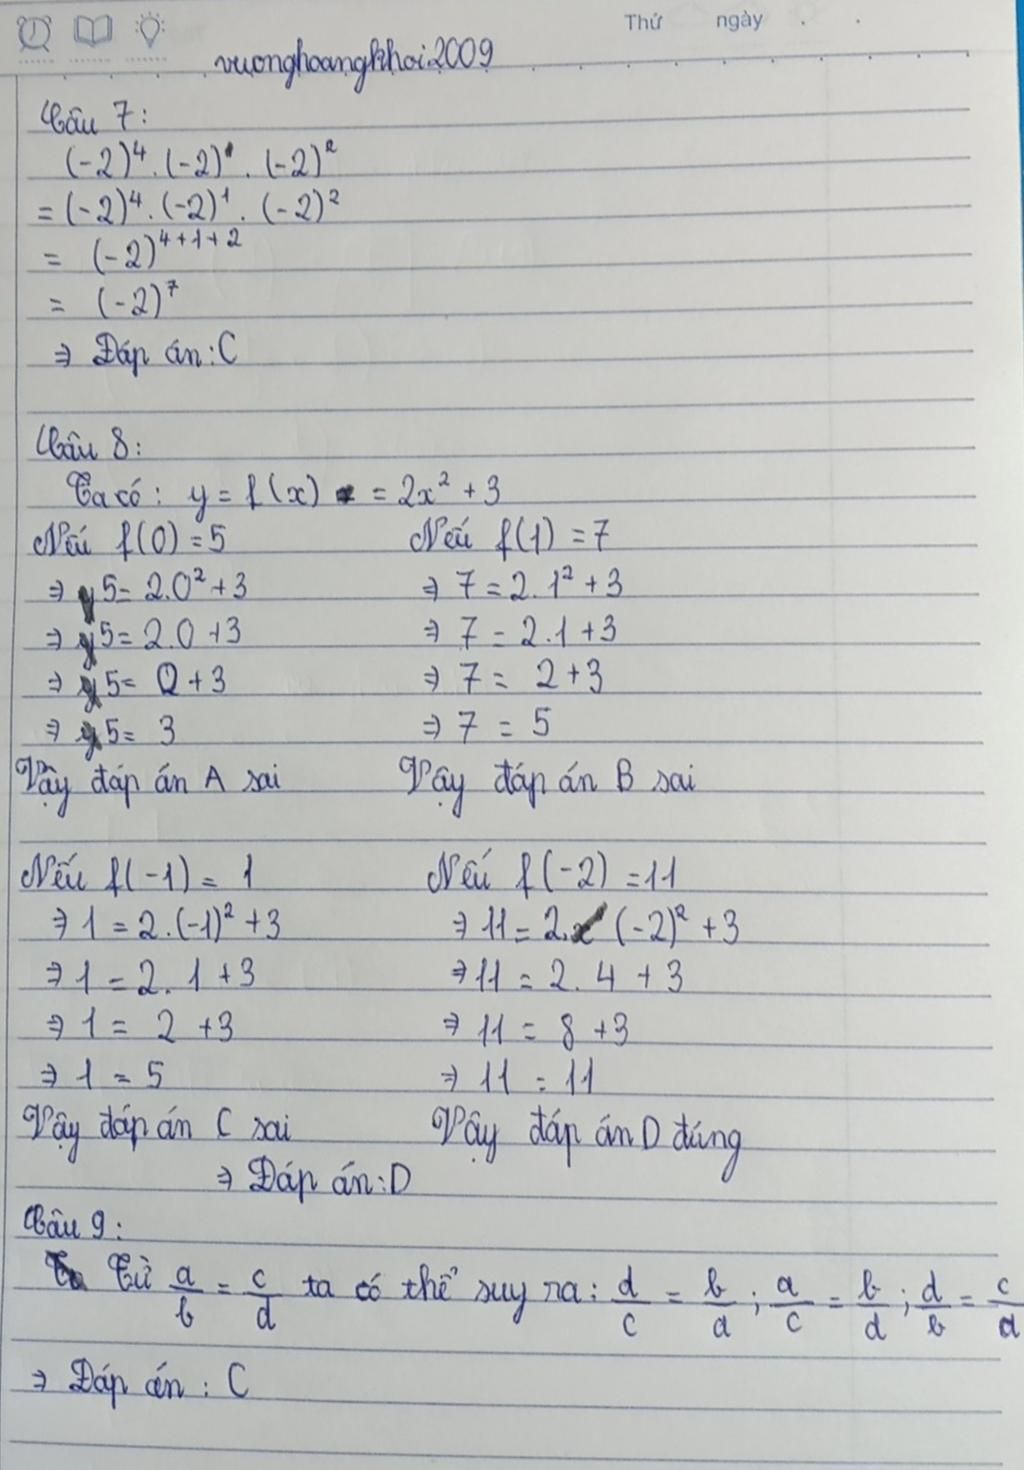 Thứ ngày
vuonghoangkhoi2009
Câu 7:
(-2)⁴ . (-2)¹ . (-2)²
= (-2)⁴ . (-2)¹ . (-2)²
= (-2)⁴⁺¹⁺²
= (-2)⁷
⇒ Đáp án: C
Câu 8:
Ta có: y = f(x) = 2x² + 3
Nếu f(0) = 5 Nếu f(1) = 7
⇒ 5 = 2.0² + 3 ⇒ 7 = 2.1² + 3
⇒ 5 = 2.0 + 3 ⇒ 7 = 2.1 + 3
⇒ 5 = 0 + 3 ⇒ 7 = 2 + 3
⇒ 5 = 3 ⇒ 7 = 5
Vậy đáp án A sai Vậy đáp án B sai
Nếu f(-1) = 1 Nếu f(-2) = 11
⇒ 1 = 2.(-1)² + 3 ⇒ 11 = 2.(-2)² + 3
⇒ 1 = 2.1 + 3 ⇒ 11 = 2.4 + 3
⇒ 1 = 2 + 3 ⇒ 11 = 8 + 3
⇒ 1 = 5 ⇒ 11 = 11
Vậy đáp án C sai Vậy đáp án D đúng
⇒ Đáp án: D
Câu 9:
Từ a/b = c/d ta có thể suy ra: d/c = b/a ; a/c = b/d ; d/b = c/a
⇒ Đáp án : C